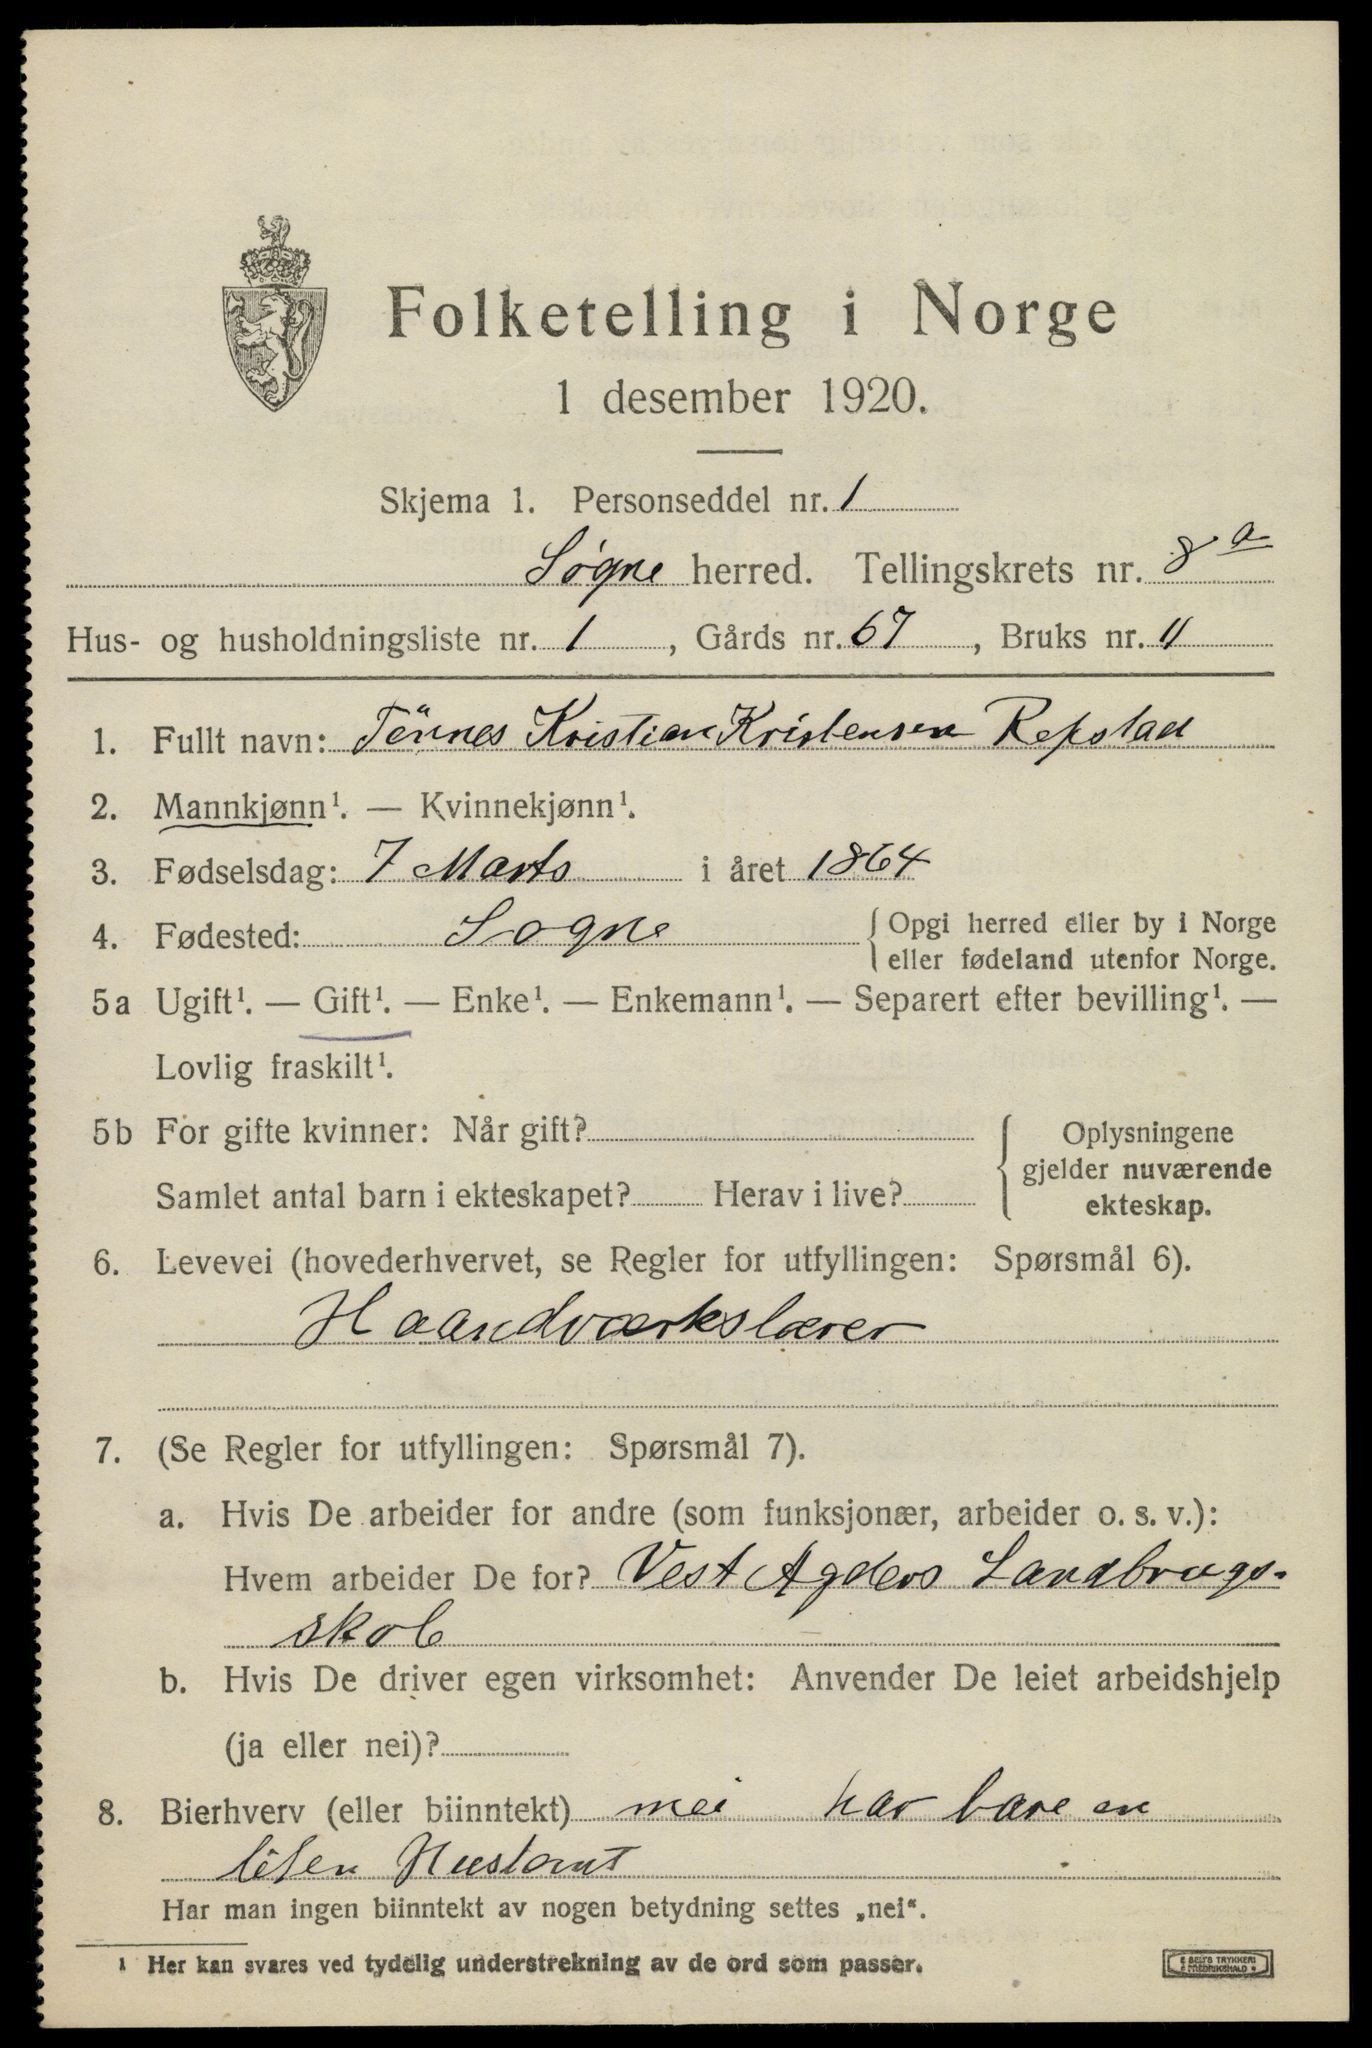 Folketelling i Norge
1 desember 1920.
Skjema 1. Personseddel nr. 1
Søgne herred. Tellingskrets nr. 8 a
Hus- og husholdningsliste nr. 1, Gårds nr. 67, Bruks nr. 11
1. Fullt navn: Tönnes Kristian Kristensen Repstad
2. Mannkjønn¹. — Kvinnekjønn¹.
3. Fødselsdag: 7 Marts i året 1864
4. Fødested: Sogne { Opgi herred eller by i Norge
eller fødeland utenfor Norge.
5a Ugift¹. — Gift¹. — Enke¹. — Enkemann¹. — Separert efter bevilling¹. —
Lovlig fraskilt¹.
5b For gifte kvinner: Når gift? { Oplysningene
gjelder nuværende
Samlet antal barn i ekteskapet? Herav i live? ekteskap.
6. Levevei (hovederhvervet, se Regler for utfyllingen: Spørsmål 6).
Haandværkslærer
7. (Se Regler for utfyllingen: Spørsmål 7).
a. Hvis De arbeider for andre (som funksjonær, arbeider o. s. v.):
Hvem arbeider De for? Vest Agders Landbrugs-
skole
b. Hvis De driver egen virksomhet: Anvender De leiet arbeidshjelp
(ja eller nei)?
8. Bierhverv (eller biinntekt) nei har bare en
liten Hustomt
Har man ingen biinntekt av nogen betydning settes „nei“.
1 Her kan svares ved tydelig understrekning av de ord som passer.
E SEM'S TRYKKERI
FREDRIKSHALD